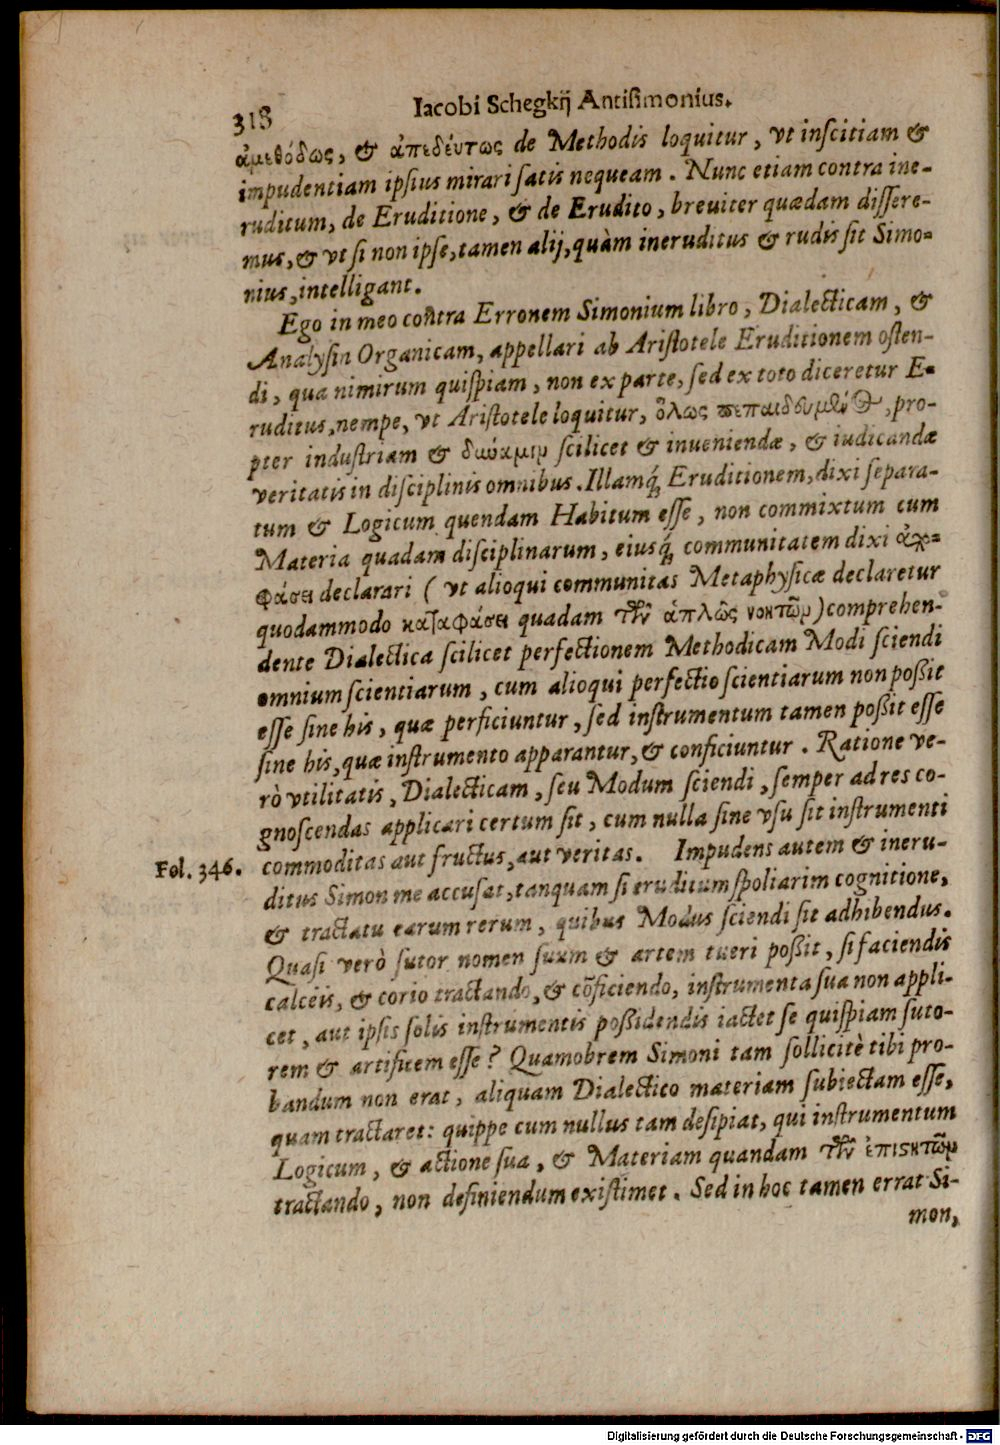 318
Iacobi Schegkij Antisimonius.
ἀμεθόδως, & ἀπεδεύτως de Methodis loquitur, vt inſcitiam &
impudentiam ipſius mirari ſatis nequeam. Nunc etiam contra ine-
ruditum, de Eruditione, & de Erudito, breuiter quædam diſſere-
mus, & vt ſi non ipſe, tamen alij, quàm ineruditus & rudis ſit Simo-
nius, intelligant.
Ego in meo contra Erronem Simonium libro, Dialecticam, &
Analyſin Organicam, appellari ab Ariſtotele Eruditionem oſten-
di, qua nimirum quiſpiam, non ex parte, ſed ex toto diceretur E-
ruditus, nempe, vt Ariſtotele loquitur, ὅλως πεπαιδευμένος, pro-
pter induſtriam & δαύαμιρ ſcilicet & inueniendæ, & iudicandæ
veritatis in diſciplinis omnibus. Illamq́; Eruditionem, dixi ſepara-
tum & Logicum quendam Habitum eſſe, non commixtum cum
Materia quadam diſciplinarum, eiusq́; communitatem dixi
φάσει declarari ( vt alioqui communitas Metaphyſicæ declaretur
quodammodo καταφάσει quadam τῶν ἁπλῶς νοητῶμ) comprehen-
dente Dialectica ſcilicet perfectionem Methodicam Modi ſciendi
omnium ſcientiarum, cum alioqui perfectio ſcientiarum non poßit
eſſe ſine his, quæ perficiuntur, ſed inſtrumentum tamen poßit eſſe
ſine his, quæ inſtrumento apparantur, & conficiuntur. Ratione ve-
rò vtilitatis, Dialecticam, ſeu Modum ſciendi, ſemper ad res co-
gnoſcendas applicari certum ſit, cum nulla ſine vſu ſit inſtrumenti
Fol. 346.
commoditas aut fructus, aut veritas. Impudens autem & ineru-
ditus Simon me accuſat, tanquam ſi eruditum ſpoliarim cognitione,
& tractatu earum rerum, quibus Modus ſciendi ſit adhibendus.
Quaſi verò ſutor nomen ſuum & artem tueri poßit, ſi faciendis
calceis, & corio tractando, & cōficiendo, inſtrumenta ſua non appli-
cet, aut ipſis ſolis inſtrumentis poßidendis iactet ſe quiſpiam ſuto-
rem & artificem eſſe? Quamobrem Simoni tam ſollicitè tibi pro-
bandum non erat, aliquam Dialectico materiam ſubiectam eſſe,
quam tractaret: quippe cum nullus tam deſipiat, qui inſtrumentum
Logicum, & actione ſua, & Materiam quandam τῶν ἐπιστητῶμ
tractando, non definiendum exiſtimet. Sed in hoc tamen errat Si-
mon,
Digitalisierung gefördert durch die Deutsche Forschungsgemeinschaft - DFG